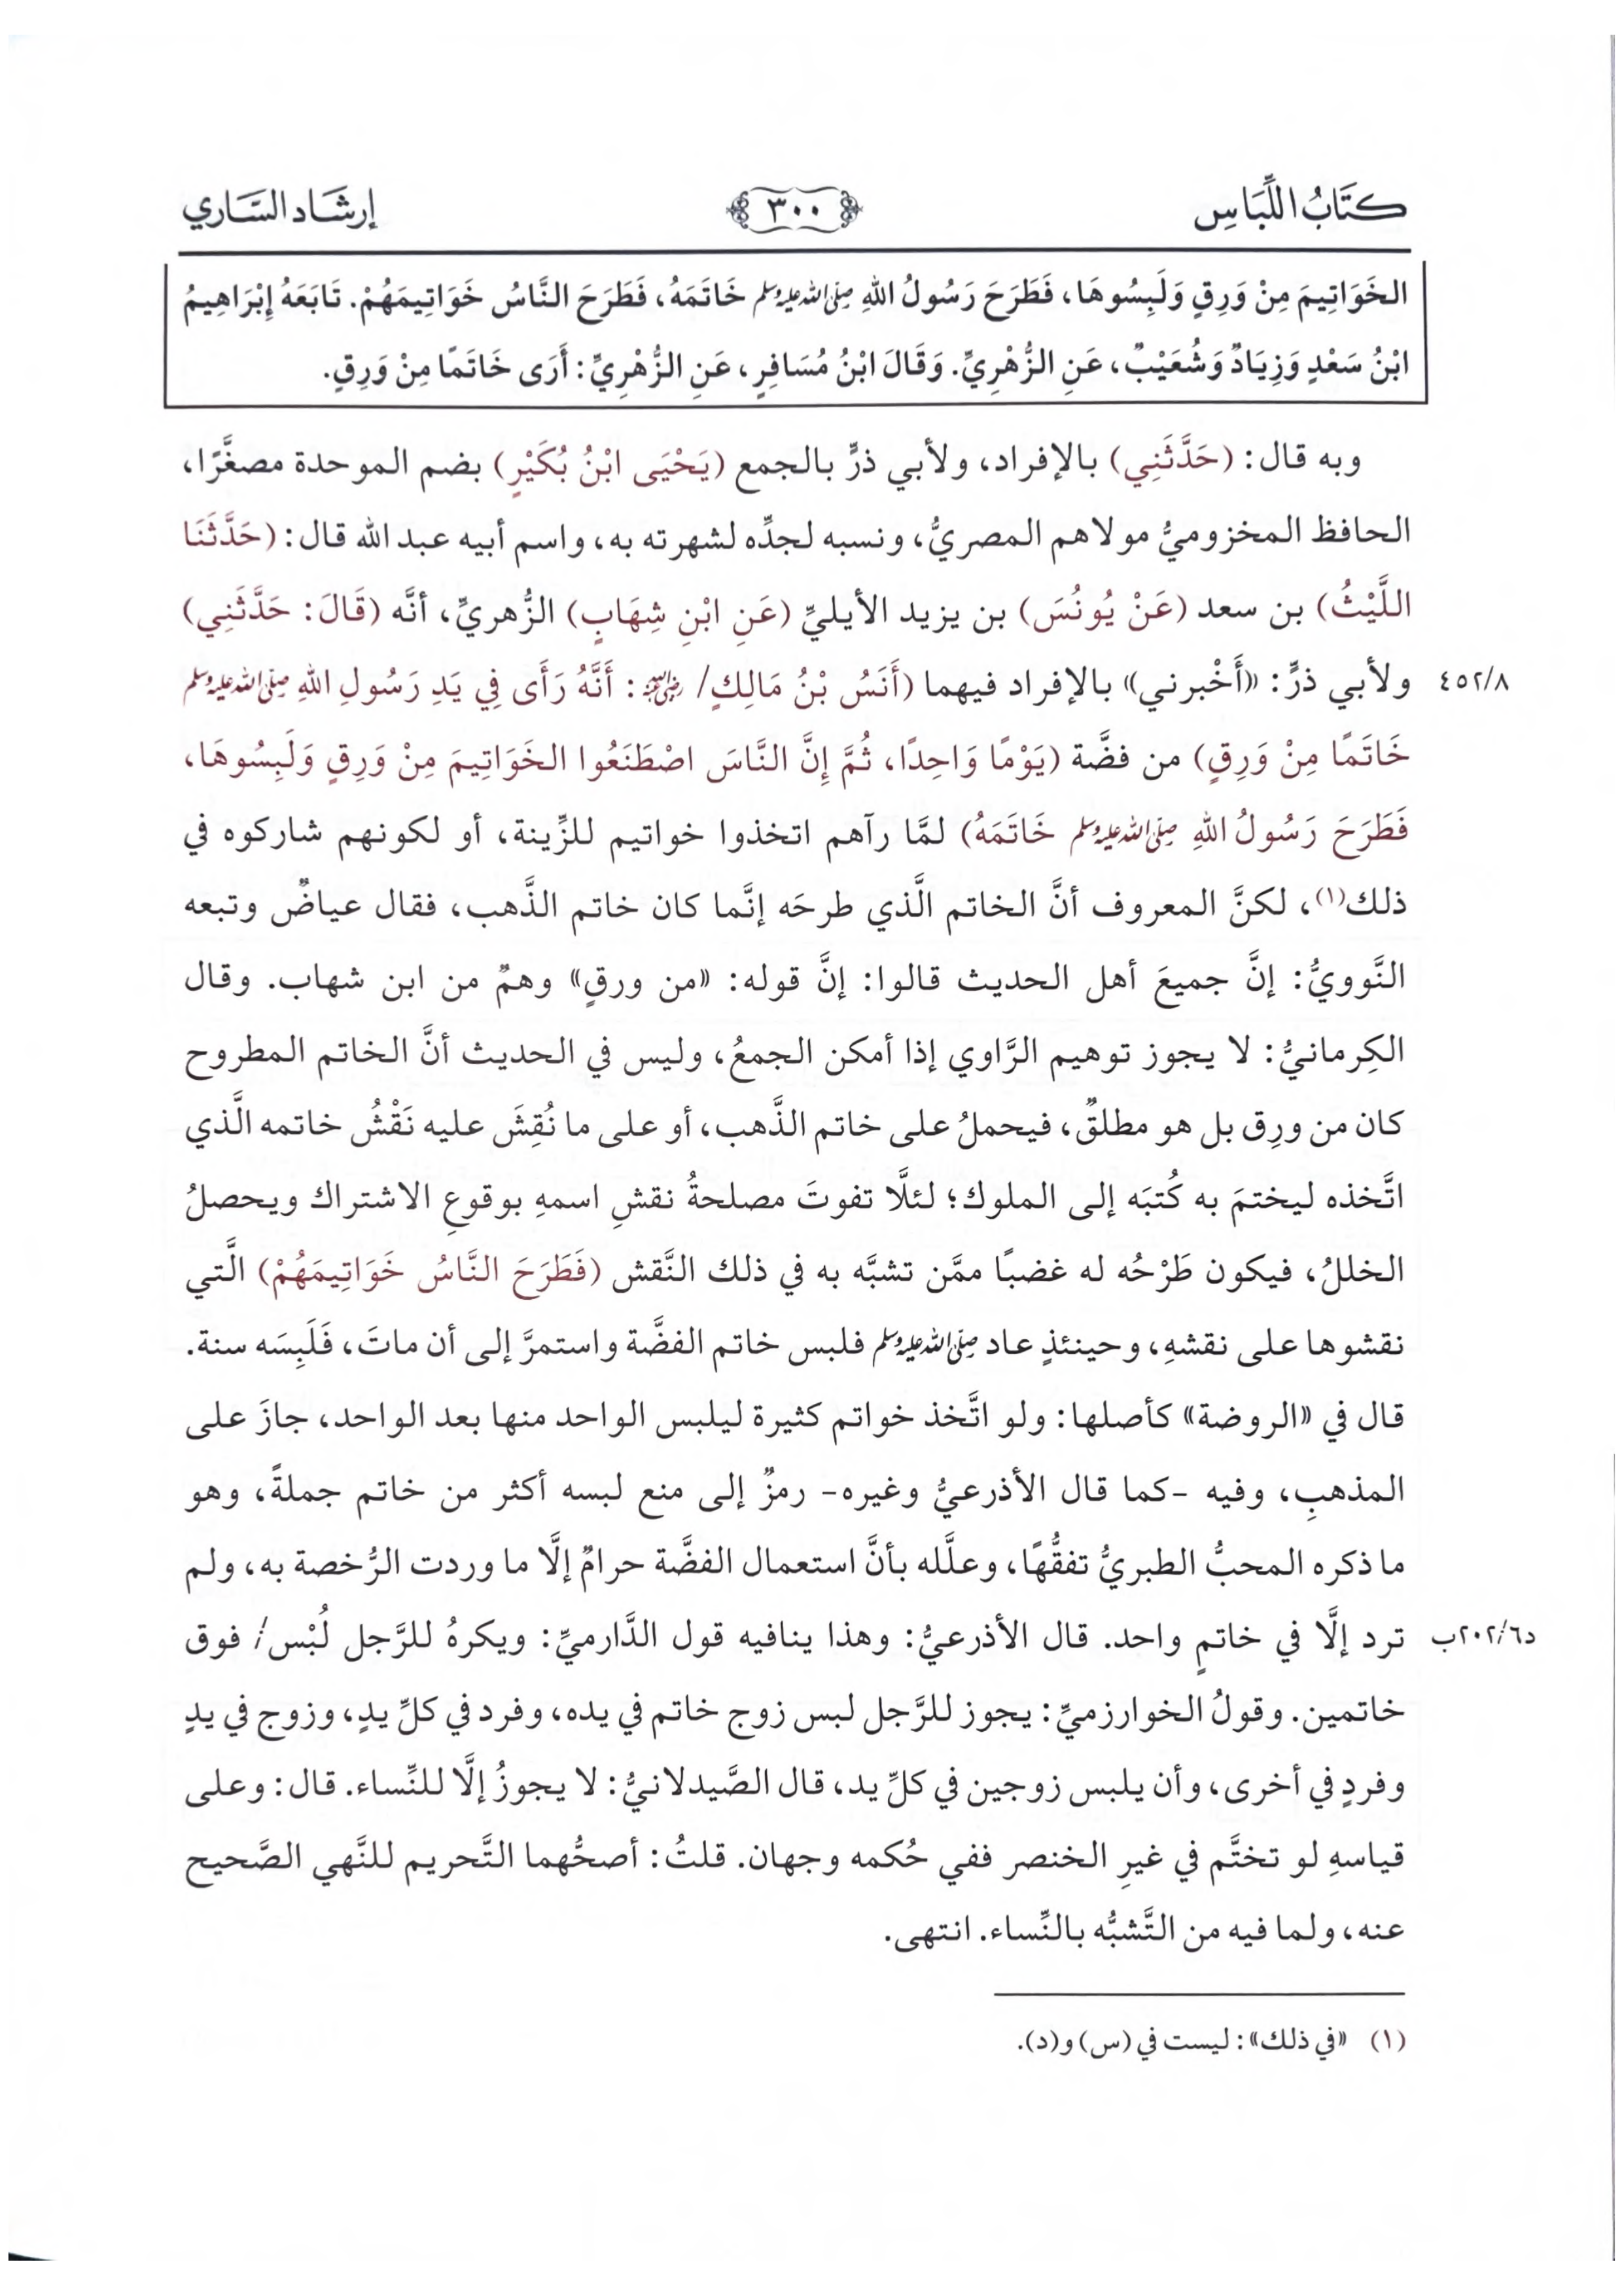 كِتَابُ اللِّبَاسِ ٣٠٠ إرشَاد السَّاري
الخَوَاتِيمَ مِنْ وَرِقٍ وَلَبِسُوهَا، فَطَرَحَ رَسُولُ اللهِ ﷺ خَاتَمَهُ، فَطَرَحَ النَّاسُ خَوَاتِيمَهُمْ. تَابَعَهُ إِبْرَاهِيمُ
ابْنُ سَعْدٍ وَزِيَادٌ وَشُعَيْبٌ، عَنِ الزُّهْرِيِّ. وَقَالَ ابْنُ مُسَافِرٍ، عَنِ الزُّهْرِيِّ: أَرَى خَاتَمًا مِنْ وَرِقٍ.
وبه قال: (حَدَّثَنِي) بالإفراد، ولأبي ذرٍّ بالجمع (يَحْيَى ابْنُ بُكَيْرٍ) بضم الموحدة مصغَّرًا،
الحافظ المخزوميُّ مولاهم المصريُّ، ونسبه لجدِّه لشهرته به، واسم أبيه عبد الله قال: (حَدَّثَنَا
اللَّيْثُ) بن سعد (عَنْ يُونُسَ) بن يزيد الأيليِّ (عَنِ ابْنِ شِهَابٍ) الزُّهريِّ، أنَّه (قَالَ: حَدَّثَنِي)
٤٥٢/٨ ولأبي ذرٍّ: «أَخْبرني» بالإفراد فيهما (أَنَسُ بْنُ مَالِكٍ/ ﵁: أَنَّهُ رَأَى فِي يَدِ رَسُولِ اللهِ ﷺ
خَاتَمًا مِنْ وَرِقٍ) من فضَّة (يَوْمًا وَاحِدًا، ثُمَّ إِنَّ النَّاسَ اصْطَنَعُوا الخَوَاتِيمَ مِنْ وَرِقٍ وَلَبِسُوهَا،
فَطَرَحَ رَسُولُ اللهِ ﷺ خَاتَمَهُ) لمَّا رآهم اتخذوا خواتيم للزِّينة، أو لكونهم شاركوه في
ذلك(١)، لكنَّ المعروف أنَّ الخاتم الَّذي طرحَه إنَّما كان خاتم الذَّهب، فقال عياضٌ وتبعه
النَّوويُّ: إنَّ جميعَ أهل الحديث قالوا: إنَّ قوله: «من ورقٍ» وهمٌ من ابن شهاب. وقال
الكِرمانيُّ: لا يجوز توهيم الرَّاوي إذا أمكن الجمعُ، وليس في الحديث أنَّ الخاتم المطروح
كان من ورِق بل هو مطلقٌ، فيحملُ على خاتم الذَّهب، أو على ما نُقِشَ عليه نَقْشُ خاتمه الَّذي
اتَّخذه ليختمَ به كُتبَه إلى الملوك؛ لئلَّا تفوتَ مصلحةُ نقشِ اسمهِ بوقوعِ الاشتراك ويحصلُ
الخللُ، فيكون طَرْحُه له غضبًا ممَّن تشبَّه به في ذلك النَّقش (فَطَرَحَ النَّاسُ خَوَاتِيمَهُمْ) الَّتي
نقشوها على نقشهِ، وحينئذٍ عاد ﷺ فلبس خاتم الفضَّة واستمرَّ إلى أن ماتَ، فَلَبِسَه سنة.
قال في «الروضة» كأصلها: ولو اتَّخذ خواتم كثيرة ليلبس الواحد منها بعد الواحد، جازَ على
المذهبِ، وفيه -كما قال الأذرعيُّ وغيره- رمزٌ إلى منع لبسه أكثر من خاتم جملةً، وهو
ما ذكره المحبُّ الطبريُّ تفقُّهًا، وعلَّله بأنَّ استعمال الفضَّة حرامٌ إلَّا ما وردت الرُّخصة به، ولم
د٢٠٢/٦ب ترد إلَّا في خاتمٍ واحد. قال الأذرعيُّ: وهذا ينافيه قول الدَّارميِّ: ويكرهُ للرَّجل لُبْس/ فوق
خاتمين. وقولُ الخوارزميِّ: يجوز للرَّجل لبس زوج خاتم في يده، وفرد في كلِّ يدٍ، وزوج في يدٍ
وفردٍ في أخرى، وأن يلبس زوجين في كلِّ يد، قال الصَّيدلانيُّ: لا يجوزُ إلَّا للنِّساء. قال: وعلى
قياسهِ لو تختَّم في غيرِ الخنصر ففي حُكمه وجهان. قلتُ: أصحُّهما التَّحريم للنَّهي الصَّحيح
عنه، ولما فيه من التَّشبُّه بالنِّساء. انتهى.
(١) «في ذلك»: ليست في (س) و(د).